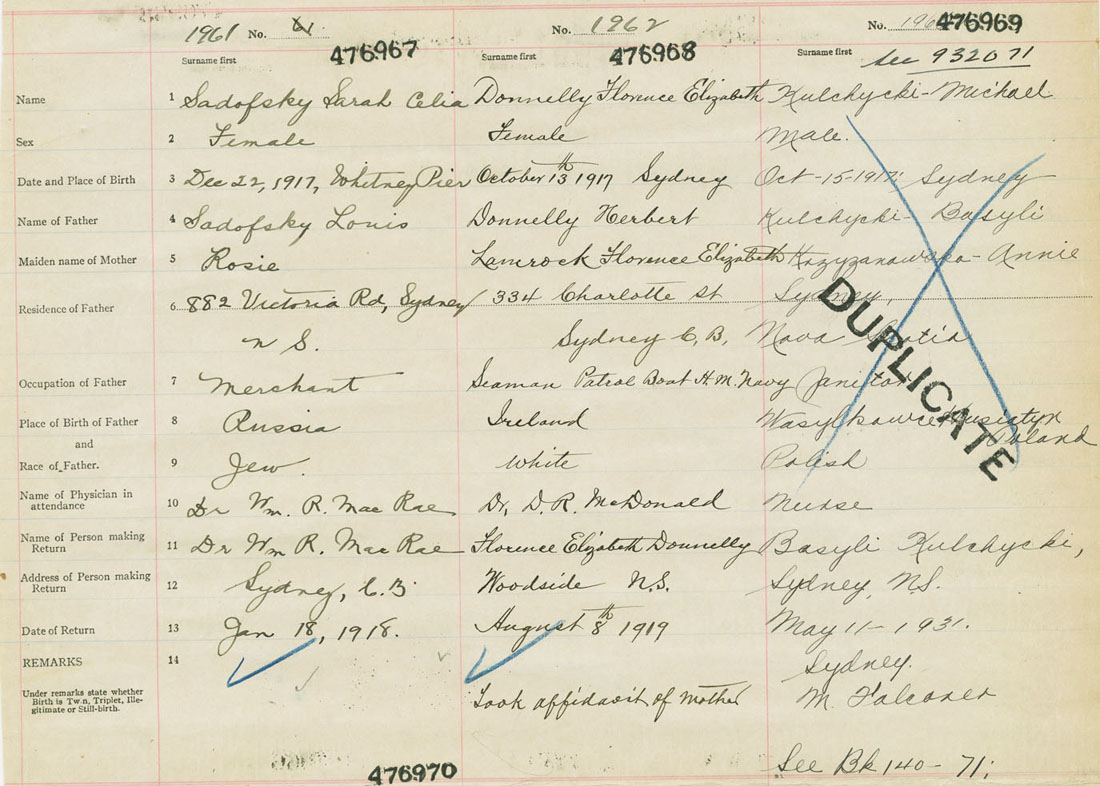 1961 No. 61
476967
No. 1962
476968
No. 196 476969
Surname first
Surname first
Surname first
See 932071
Name 1 Sadofsky Sarah Celia Donnelly Florence Elizabeth Kulchycki - Michael
Sex 2 Female Female Male.
Date and Place of Birth 3 Dec 22, 1917, Whitney Pier October 13th 1917 Sydney Oct-15-1917: Sydney
Name of Father 4 Sadofsky Louis Donnelly Herbert Kulchycki - Basyli
Maiden name of Mother 5 Rosie Lamrock Florence Elizabeth Krzyzanowska - Annie
Residence of Father 6 882 Victoria Rd, Sydney 334 Charlotte St Sydney,
N S. Sydney C, B, Nova Scotia
Occupation of Father 7 Merchant Seaman Patrol Boat H.M. Navy Janitor
Place of Birth of Father 8 Russia Ireland Wasylkowce Husiatyn
and Poland
Race of Father. 9 Jew. White Polish
Name of Physician in
attendance 10 Dr Wm. R. Mac Rae Dr, D. R. McDonald Nurse
Name of Person making
Return 11 Dr Wm R. Mac Rae Florence Elizabeth Donnelly Basyli Kulchycki,
Address of Person making
Return 12 Sydney, C.B Woodside N.S. Sydney, N.S.
Date of Return 13 Jan 18, 1918. August 8th 1919 May 11 - 1931.
REMARKS 14 Sydney.
Under remarks state whether
Birth is Twin, Triplet, Ille-
gitimate or Still-birth.
Took affidavit of mother M. Falconer
DUPLICATE
See Bk 140 - 71;
476970